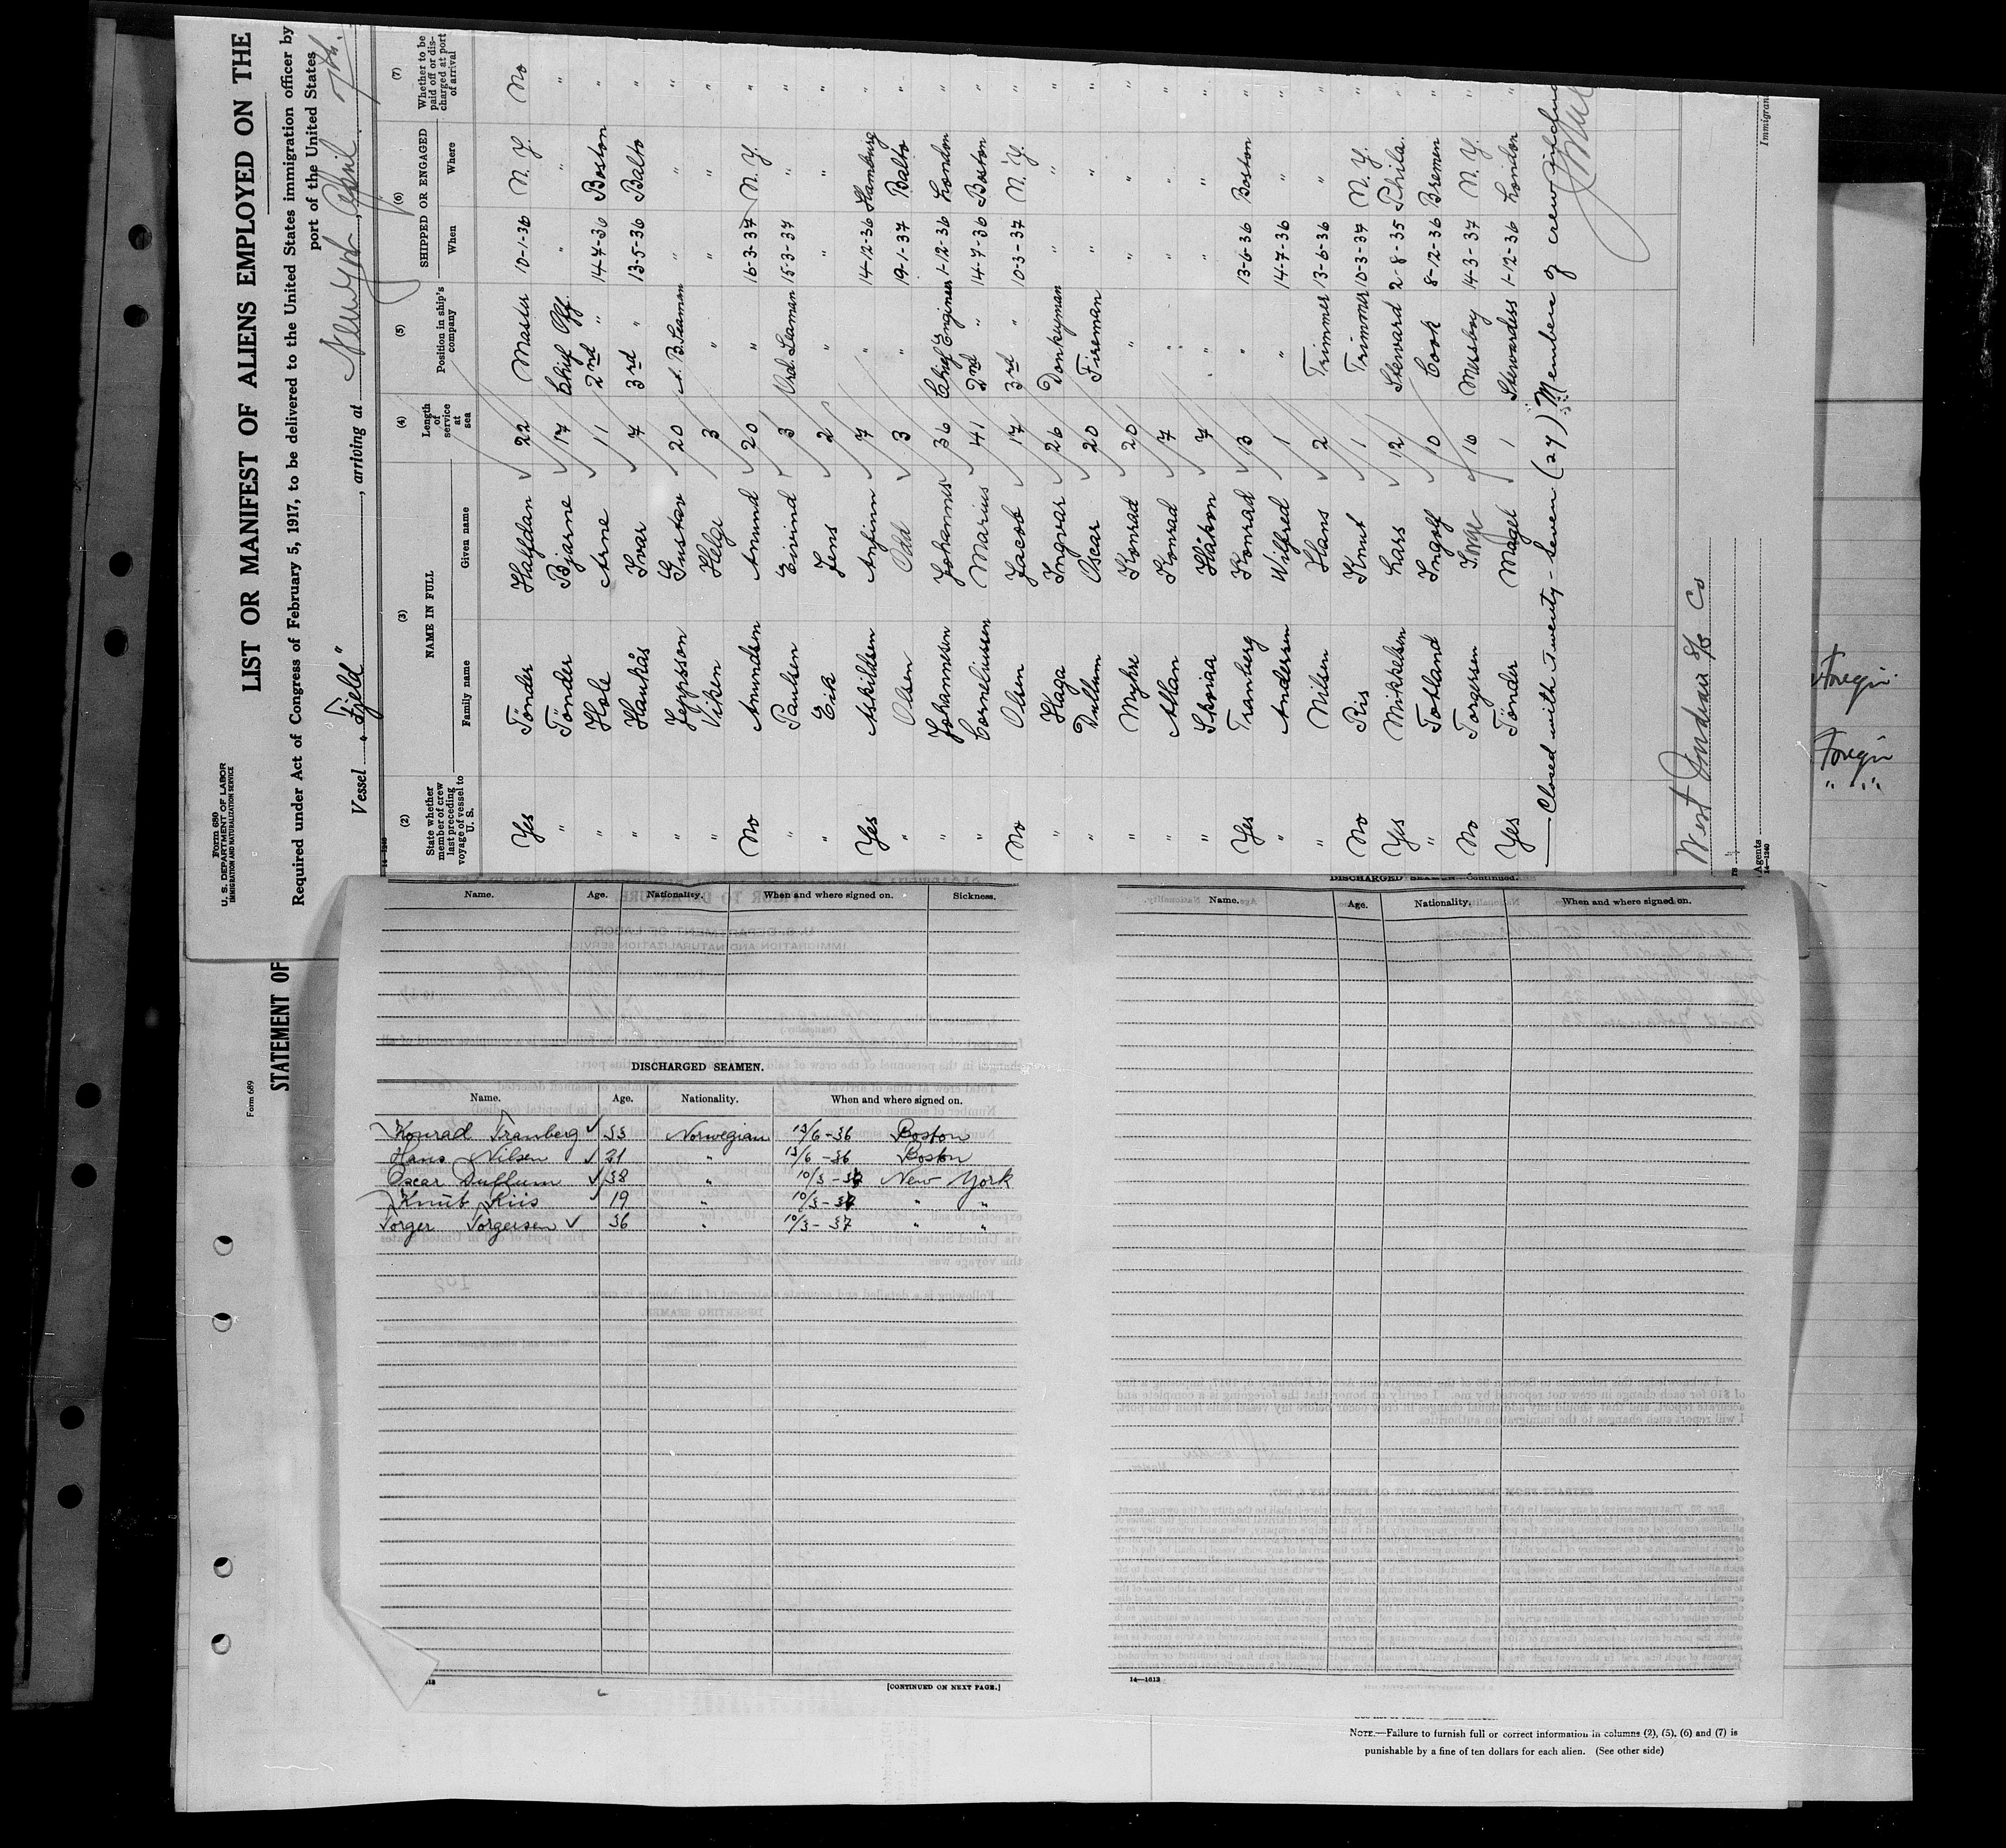 Form 680
U. S. DEPARTMENT OF LABOR
IMMIGRATION AND NATURALIZATION SERVICE
LIST OR MANIFEST OF ALIENS EMPLOYED ON THE
Required under Act of Congress of February 5, 1917, to be delivered to the United States immigration officer by
port of the United States
Vessel "Fjeld", arriving at April 7th.
14-1240
(2) (3) (4) (5) (6) (7)
State whether member of crew last preceding voyage of vessel to U. S. NAME IN FULL Length of service at sea Position in ship's company SHIPPED OR ENGAGED Whether to be paid off or discharged at port of arrival
Family name Given name When Where
Yes Tønder Halfdan 22 Master 10-1-36 N. Y. No
" Tønder Bjarne 17 Chief Off. " " "
" Hole Arne 11 2nd " 14-7-36 Boston "
" Haukås Ivar 7 3rd " 13-5-36 Balto "
" Jeppsson Gustav 20 A. B. Seaman " " "
" Viken Helge 3 " " " "
No Amundsen Amund 20 " 16-3-37 N. Y. "
" Paulsen Eivind 3 Ord. Seaman 15-3-37 " "
" Eik Jens 2 " " " "
Yes Askildsen Anfinn 7 " 14-12-36 Hamburg "
" Olsen Odd 3 " 19-1-37 Balto "
" Johannesen Johannes 36 Chief Engineer 1-12-36 London "
" Corneliussen Marius 41 2nd " 14-7-36 Boston "
No Olsen Jacob 17 3rd " 10-3-37 N. Y. "
" Haga Ingvar 26 Donkeyman " " "
" Dullum Oscar 20 Fireman " " "
" Myhre Konrad 20 " " " "
" Athan Konrad 7 " " " "
" Skoiaa Håkon 7 " " " "
Yes Tranberg Konrad 13 " 13-6-36 Boston "
" Andersen Wilfred 1 " 14-7-36 " "
" Nilsen Hans 2 Trimmer 13-6-36 " "
No Riis Knut 1 Trimmer 10-3-37 N. Y. "
Yes Mikkelsen Lars 12 Steward 2-8-35 Phila. "
" Totland Ingolf 10 Cook 8-12-36 Bremen "
No Torgersen 16 Messboy 14-3-37 N. Y. "
Yes Tønder Magel 1 Stewardess 1-12-36 London "
Closed with twenty-seven (27) Members of crew
West Indian S/S Co
Agents
14-1240
Immigran
Foregin
Foregin
" "
STATEMENT OF
Form 689
Name. Age. Nationality. When and where signed on. Sickness.
DISCHARGED SEAMEN.
Name. Age. Nationality. When and where signed on.
Konrad Tranberg 33 Norwegian 13/6-36 Boston
Hans Nilsen 21 " 13/6-36 Boston
Oscar Dullum 38 " 10/3-37 New York
Knut Riis 19 " 10/3-37 " "
Torger Torgersen 36 " 10/3-37 " "
[CONTINUED ON NEXT PAGE.]
DISCHARGED SEAMEN—Continued.
Name. Age. Nationality. When and where signed on.
14—1613
NOTE.—Failure to furnish full or correct information in columns (2), (5), (6) and (7) is
punishable by a fine of ten dollars for each alien. (See other side)